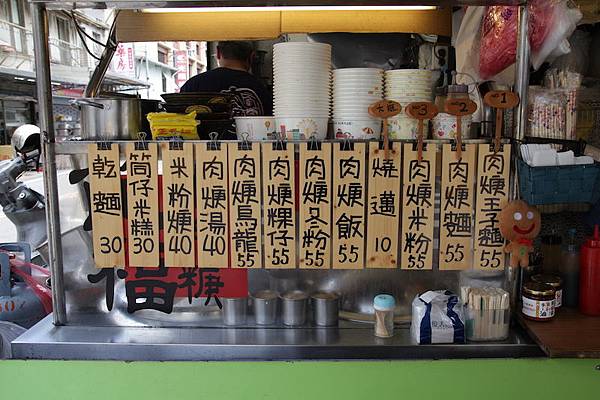 乾麵 30
筒仔米糕 30
米粉焿 40
肉焿湯 40
肉焿烏龍 55
肉焿粿仔 55
肉焿冬粉 55
肉焿飯 55
燒邁 10
肉焿米粉 55
肉焿麵 55
肉焿王子麵 55
-3
-2
-1
福